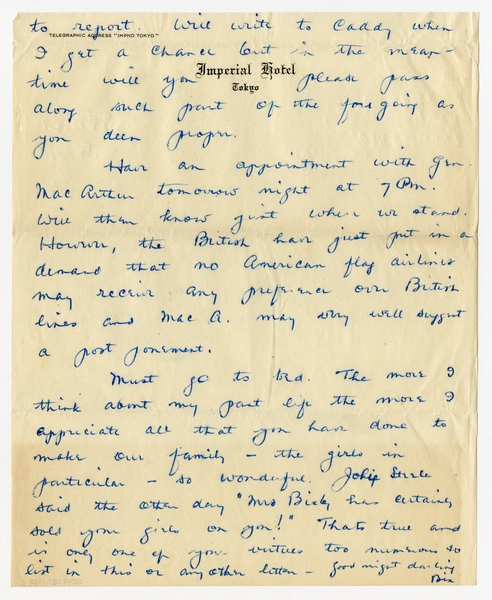 to report. Will write to Caddy when
TELEGRAPHIC ADDRESS "IMPHO TOKYO"
I get a chance but in the mean-
time will you please pass
Imperial Hotel
Tokyo
along such part of the foregoing as
you deem proper.
Have an appointment with Gen.
MacArthur tomorrow night at 7 PM.
Will then know just where we stand.
However, the British have just put in a
demand that no American flag airlines
may receive any preference over British
lines and Mac A. may very well suggest
a post ponement.
Must go to bed. The more I
think about my past life the more I
appreciate all that you have done to
make our family – the girls in
particular – so wonderful. Steele
said the other day "Mrs Bixby has certainly
sold your girls on you!" Thats true and
is only one of your virtues too numerous to
list in this or any other letter – good night darling
Bix